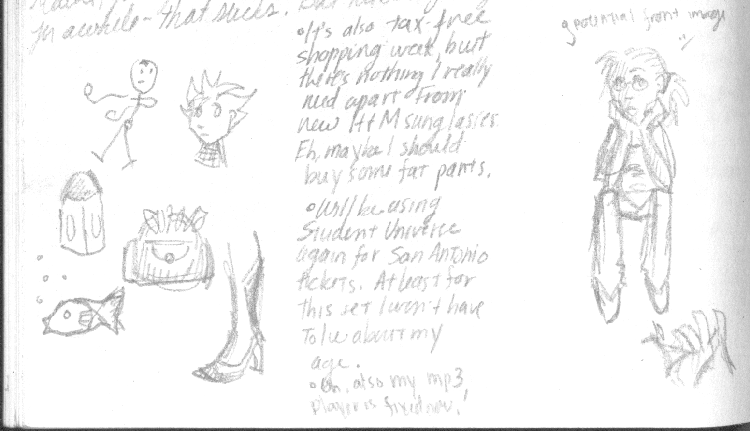 for awhile - that sucks. But
a potential front image
•It's also tax-free
shopping week, but
there's nothing I really
need apart from
new H+M sunglasses.
Eh, maybe I should
buy some fat pants.
•Will be using
Student Universe
again for San Antonio
tickets. At least for
this set I won't have
to lie about my
age.
•Oh, also my mp3
player is fixed now!